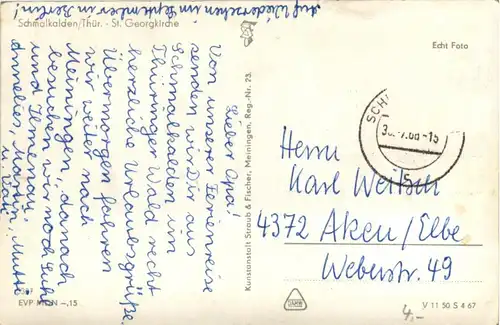 Auf Wiedersehen im September in Berlin!
Schmalkalden/Thür. - St. Georgkirche
Lieber Opa!
Von unserer Ferienreise
senden wir Dir aus
Schmalkalden im
Thüringer Wald recht
herzliche Urlaubsgrüße.
Übermorgen fahren
wir weiter nach
Meiningen, danach
besuchen wir noch Suhl
und Ilmenau.
Annelies, Martin, Mutti
u. Vati
EVP MDN –,15
Kunstanstalt Straub & Fischer, Meiningen, Reg.-Nr. 23.
Echt Foto
SCH
-15
Herrn
Karl Weitsch
4372 Aken/Elbe
Weberstr. 49
V 11 50 S 4 67
4,-